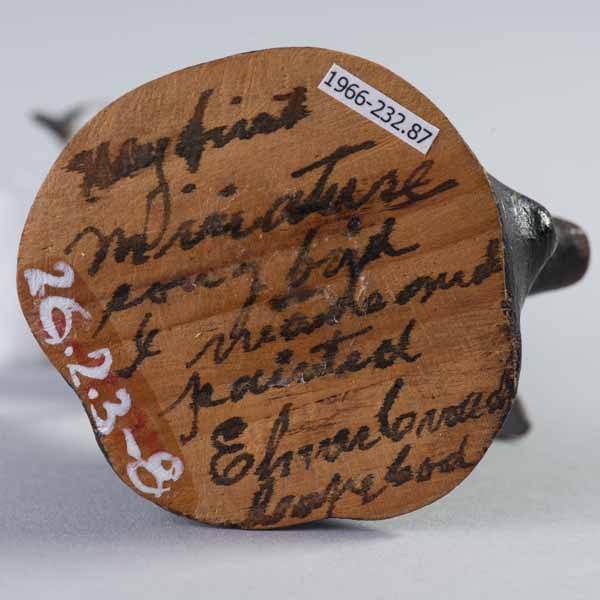 1966-232.87
My first
Miniature
song bird
I made and
painted
Elmer Crowell
cape cod
26.2.3-8